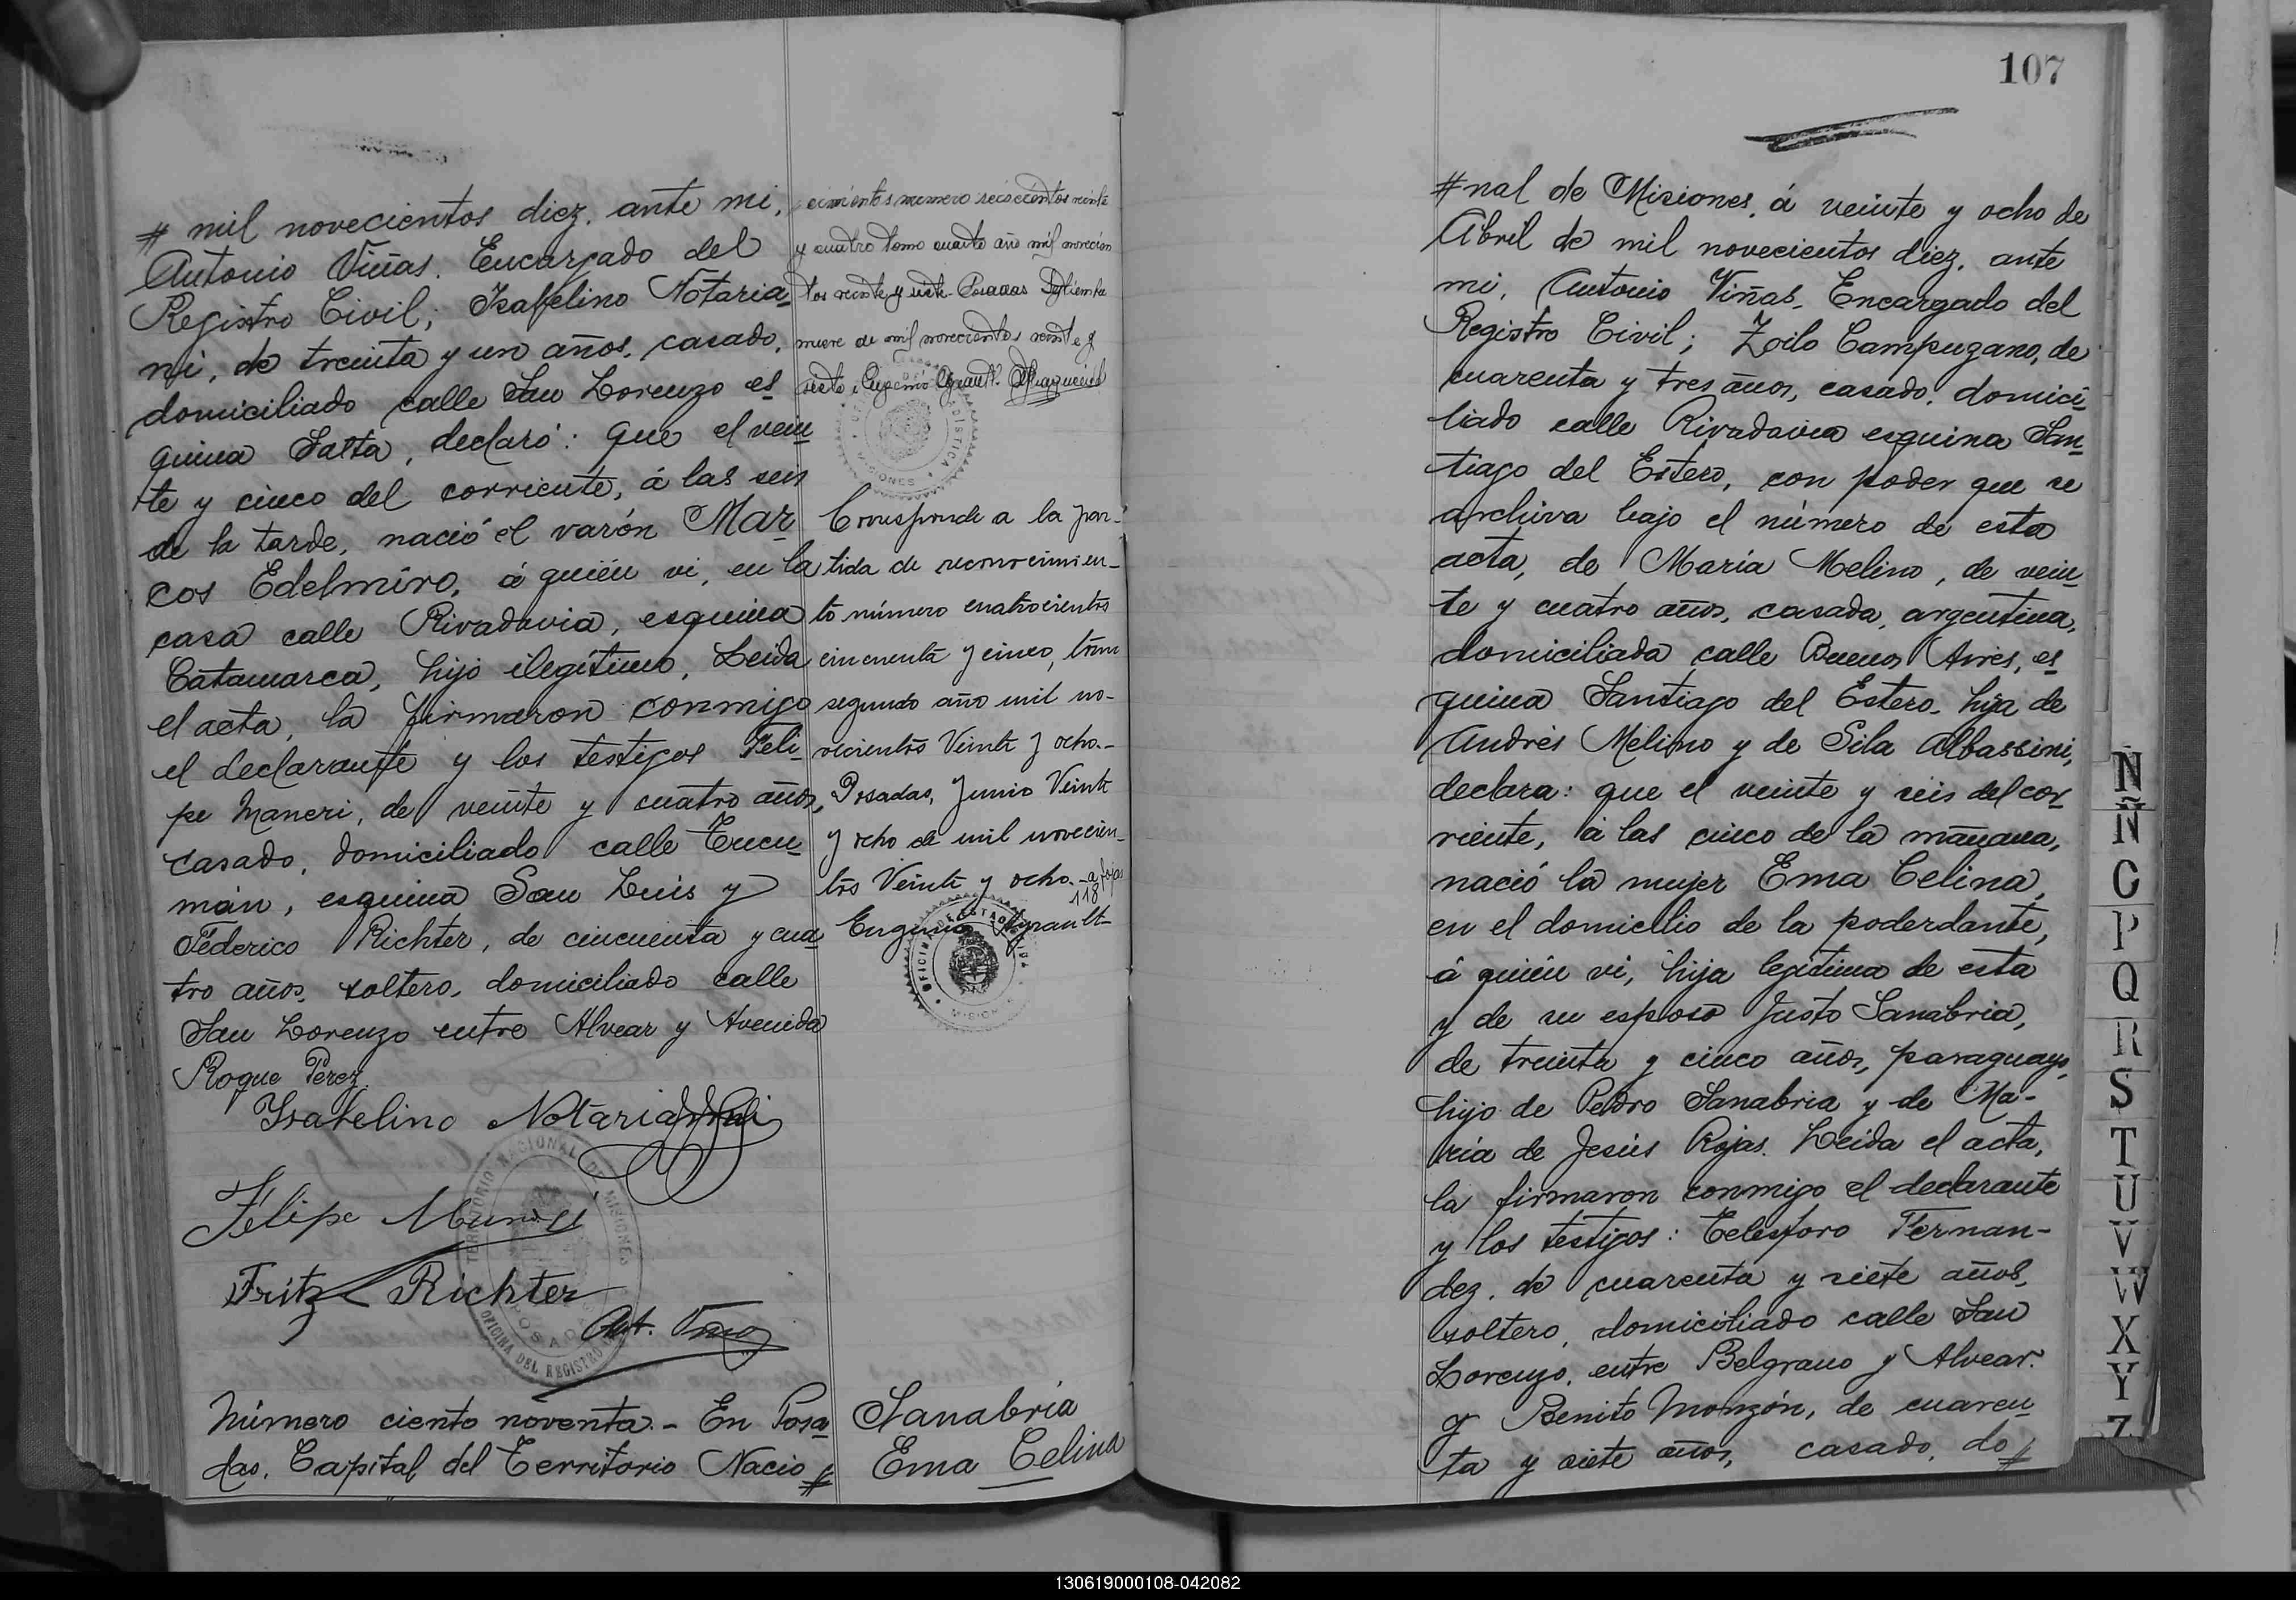 # mil novecientos diez, ante mi,
Antonio Viñas, Encargado del
Registro Civil; Isabelino Notaria-
ni, de treinta y un años, casado,
domiciliado calle San Lorenzo es
quina Salta, declaró: que el vein
te y cinco del corriente, á las seis
de la tarde, nació el varón Mar
cos Edelmiro, á quién vi, en la
casa calle Rivadavia, esquina
Catamarca, hijo ilegítimo, Leida
el acta, la firmaron conmigo
el declarante y los testigos Feli-
pe Maneri, de veinte y cuatro años,
casado, domiciliado calle Tucu-
mán, esquina San Luis y
Federico Richter, de cincuenta y cua
tro años, soltero, domiciliado calle
San Lorenzo entre Alvear y Avenida
Roque Perez.
Isabelino Notariani
Felipe
Fritz Richter
Ant.
TERRITORIO NACIONAL DE MISIONES
OFICINA DEL REGISTRO
POSADAS
Número ciento noventa.- En Posa
das, Capital del Territorio Nacio #
cimientos numero seiscientos veinte
y cuatro tomo cuarto año mil novecien
tos veinte y siete. Posadas Setiembre
nueve de mil novecientos veinte y
siete. Eugenio
Corresponde a la par-
tida de reconocimien-
to número cuatrocientos
cincuenta y cinco, tomo
segundo año mil no-
vecientos Veinte y ocho.-
Posadas, Junio Veinte
y ocho de mil novecien-
tos Veinte y ocho.- a fojas
118
Eugenio
Sanabria
Ema Celina
107
# nal de Misiones, á veinte y ocho de
Abril de mil novecientos diez, ante
mi, Antonio Viñas, Encargado del
Registro Civil; Zoilo Campuzano, de
cuarenta y tres años, casado, domici
liado calle Rivadavia esquina San
tiago del Estero, con poder que se
archiva bajo el número de esta
acta, de María Melino, de vein
te y cuatro años, casada, argentina,
domiciliada calle Buenos Aires, es
quina Santiago del Estero, hija de
Andrés Melino y de Sila Albassini,
declara: que el veinte y seis del cor
riente, á las cinco de la mañana,
nació la mujer Ema Celina,
en el domicilio de la poderdante,
á quién vi, hija legítima de esta
y de su esposo Justo Sanabria,
de treinta y cinco años, paraguayo,
hijo de Pedro Sanabria y de Ma-
ria de Jesús Rojas. Leida el acta,
la firmaron conmigo el declarante
y los testigos: Telesforo Fernan-
dez, de cuarenta y siete años,
soltero, domiciliado calle San
Lorenzo, entre Belgrano y Alvear.
y Benito Monzón, de cuaren
ta y siete años, casado, do #
N
Ñ
P
Q
R
S
T
U
V
W
X
Y
Z
130619000108-042082